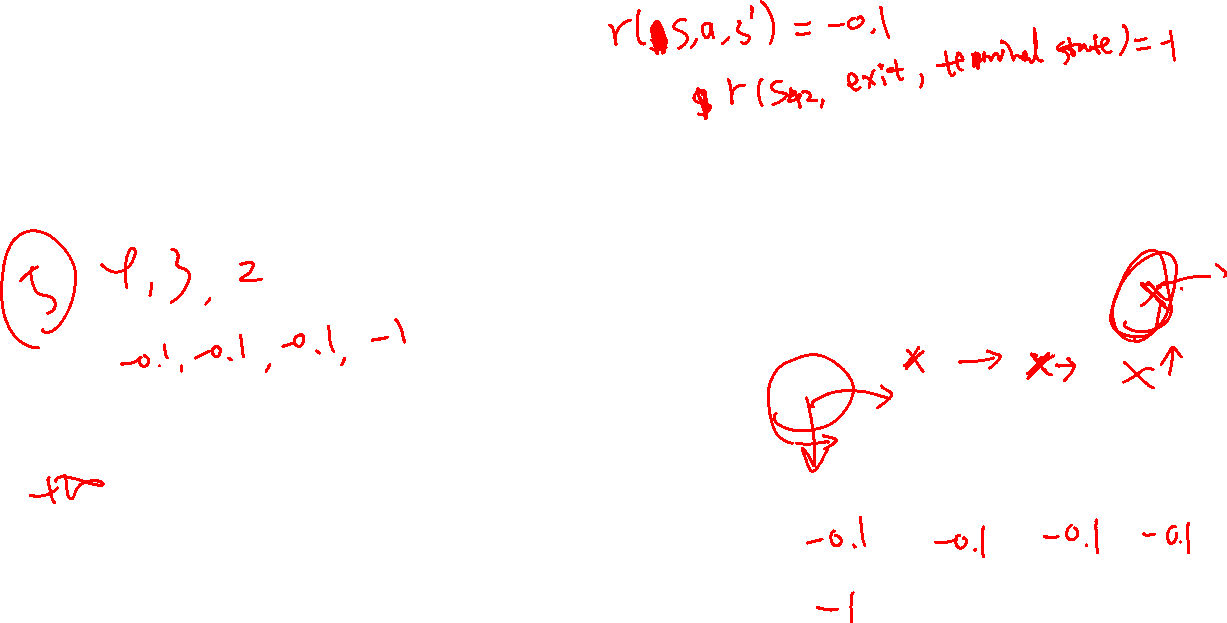 r(s,a,s') = -0.1
r(S42, exit, terminal state) = -1
5 4, 3, 2
-0.1, -0.1, -0.1, -1
x → x→ x↑
-0.1 -0.1 -0.1 -0.1
-1